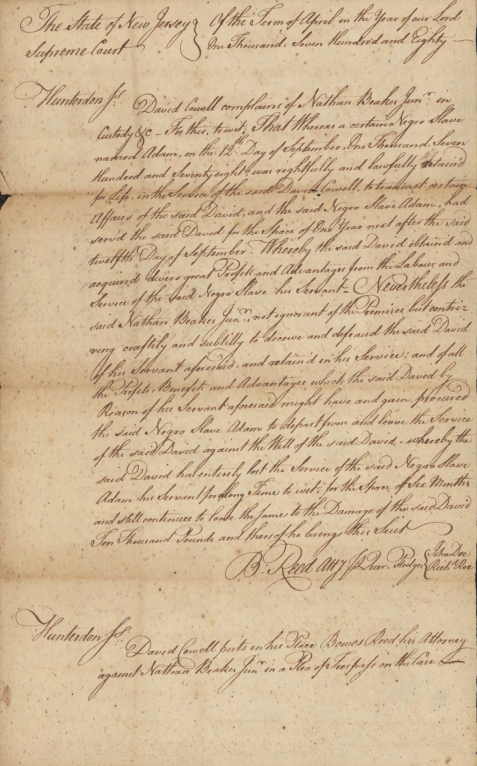 The State of New Jersey } Of the Term of April in the Year of our Lord
Supreme Court } One Thousand, Seven Hundred and Eighty —
Hunterdon Ss. David Cowell complains of Nathan Beaker Junr. in
Custody &c — For this, to wit, That Whereas a certain Negro Slave
named Adam, on the 12th Day of September, One Thousand, Seven
Hundred and Seventy eight was rightfully and lawfully retained
for Life, in the Service of the said David Cowell, to transact certain
Affairs of the said David, and the said Negro Slave Adam, had
serv'd the said David for the Space of One Year next after the said
twelfth Day of September – Whereby the said David obtain'd and
acquired divers great Profits and Advantages from the Labour and
Service of the said Negro Slave his Servant – Nevertheless the
said Nathan Beaker Junr. not ignorant of the Premises but contri-
ving craftily and subtilly to deceive and defraud the said David
of his Servant aforesaid, and retain'd in his Service; and of all
the Profits Benefits and Advantages which the said David by
Reason of his Servant aforesaid might have and gain, procured
the said Negro Slave Adam to depart from and leave the Service
of the said David against the Will of the said David – whereby the
said David hath entirely lost the Service of the said Negro Slave
Adam his Servant for a long Time to wit, for the Space of Six Months
and still continues to loose the same to the Damage of the said David
Ten Thousand Pounds and thereof he brings this Suit
B. Reed Atty p Quer. Pledges { John Doe
Richd. Roe
Hunterdon Ss. David Cowell puts in his Place Bowes Reed his Attorney
against Nathan Beaker Junr. in a Plea of Trespass on the Case —